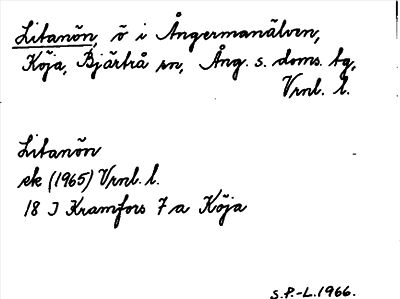 Litanön, ö i Ångermanälven,
Köja, Bjärtrå sn, Ång. s. doms. tg,
Vrnl. l.
Litanön
ek (1965) Vrnl. l.
18 J Kramfors 7 a Köja
S.P.-L. 1966.